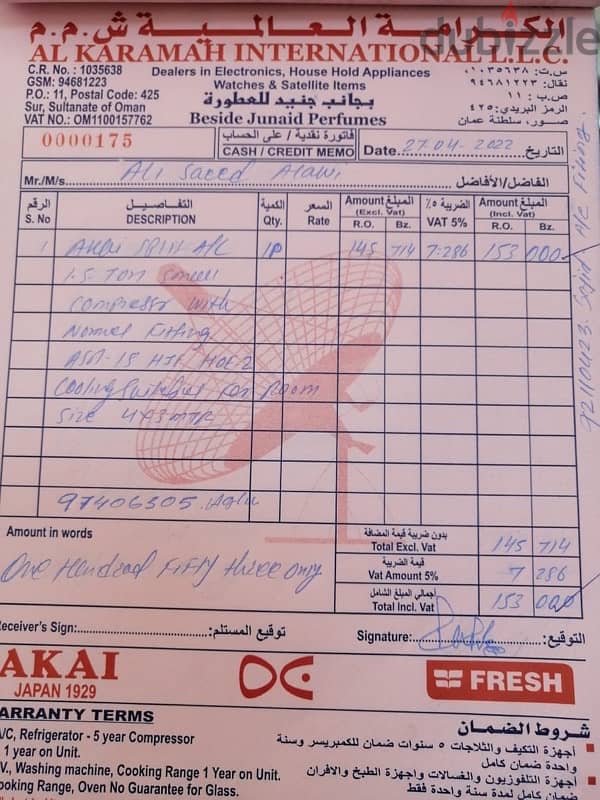 الكرامة العالمية ش.م.م
dubizzle
AL KARAMAH INTERNATIONAL L.L.C.
C.R. No. : 1035638
GSM: 94681223
P.O.: 11, Postal Code: 425
Sur, Sultanate of Oman
VAT NO.: OM1100157762
Dealers in Electronics, House Hold Appliances
Watches & Satellite Items
بجانب جنيد للعطورة
Beside Junaid Perfumes
س.ت: ٠١٠٣٥٦٣٨
نقال: ٩٤٦٨١٢٢٣
ص.ب : ١١
الرمز البريدي: ٤٢٥
صور، سلطنة عمان
0000175
فاتورة نقدية / على الحساب
CASH / CREDIT MEMO
Date 27-04-2022 التاريخ
Mr./M/s Ali Saeed Alawi الفاضل/الأفاضل
الرقم S. No
التفاصيل DESCRIPTION
الكمية Qty.
السعر Rate
المبلغ Amount (Excl. Vat) R.O. Bz.
الضريبة ٥٪ VAT 5%
المبلغ Amount (Incl. Vat) R.O. Bz.
1 Akai Split A/C 1P 145 714 7.286 153 000
1.5 Ton Small
Compressor with
Normal Fitting
Cooling Suitable For Room
Size 4x3 MTR
97406305
Amount in words
One Hundred Fifty three only
بدون ضريبة قيمة المضافة
Total Excl. Vat 145 714
قيمة الضريبة
Vat Amount 5% 7 286
إجمالي المبلغ الشامل
Total Incl. Vat 153 000
Receiver's Sign: توقيع المستلم:
Signature: التوقيع:
AKAI
JAPAN 1929
FRESH
WARRANTY TERMS
A/C, Refrigerator - 5 year Compressor
1 year on Unit.
T.V., Washing machine, Cooking Range 1 Year on Unit.
Cooking Range, Oven No Guarantee for Glass.
شروط الضمان
أجهزة التكيف والثلاجات ٥ سنوات ضمان للكمبريسر وسنة
واحدة ضمان كامل
أجهزة التلفزيون والغسالات وأجهزة الطبخ والافران
ضمان كامل لمدة سنة واحدة فقط